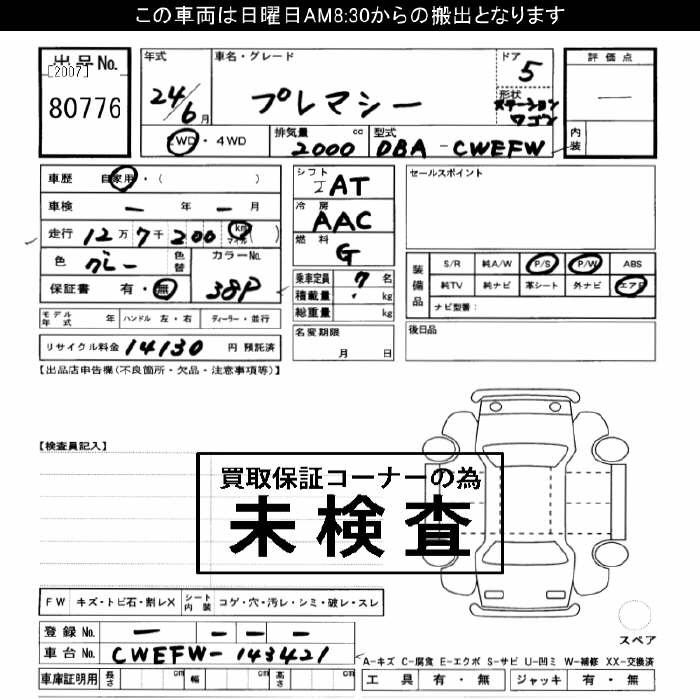 この車両は日曜日AM8:30からの搬出となります
出品No.
[2007]
80776
年式
24/6月
車名・グレード
プレマシー
ドア
5
形状
ステーションワゴン
評価点
―
内装
2WD・4WD
排気量 cc
2000
型式
DBA-CWEFW
車歴 自家用・( )
車検 ― 年 ― 月
走行 12万7千200 km マイル ( )
色 グレー 色替
カラーNo.
38P
保証書 有・無
シフト
IAT
冷房
AAC
燃料
G
乗車定員 7 名
積載量 ・ kg
総重量 kg
名変期限
月 日
セールスポイント
装備品
S/R 純A/W P/S P/W ABS
純TV 純ナビ 革シート 外ナビ エアB
ナビ型番:
後日品
モデル年式 年 ハンドル 左・右 ディーラー・並行
リサイクル料金 14130 円 預託済
【出品店申告欄(不良箇所・欠品・注意事項等)】
【検査員記入】
買取保証コーナーの為
未検査
FW キズ・トビ石・割レX シート内装 コゲ・穴・汚レ・シミ・破レ・スレ
登録No. ― ― ― ―
車台No. CWEFW-143421
車庫証明用 長さ cm 幅 cm 高さ cm
スペア
A-キズ C-腐食 E-エクボ S-サビ U-凹ミ W-補修 XX-交換済
工具 有・無 ジャッキ 有・無